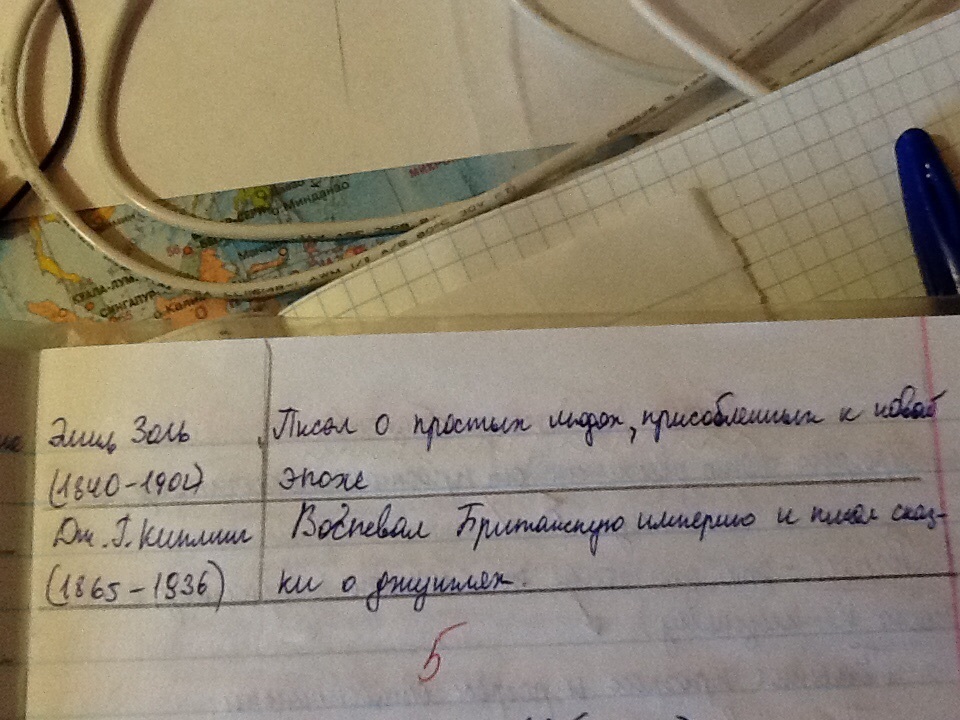 МИКРО
о Минданао
КУАЛА-ЛУМ
СИНГАПУР
о. Кали
Эмиль Золь
(1840-1902)
Писал о простых людях, присобленным к новой
эпохе
Дж. Г. Киплинг
(1865-1936)
Воспевал Британскую империю и писал сказ-
ки о джунглях.
5